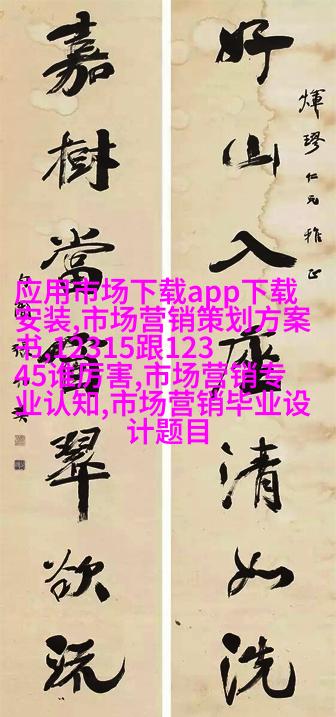 好山入座清如洗
煇璆仁兄雅正
嘉樹當窗翠欲流
应用市场下载app下载
安装,市场营销策划方案
书,12315跟123
45谁厉害,市场营销专
业认知,市场营销毕业设
计题目